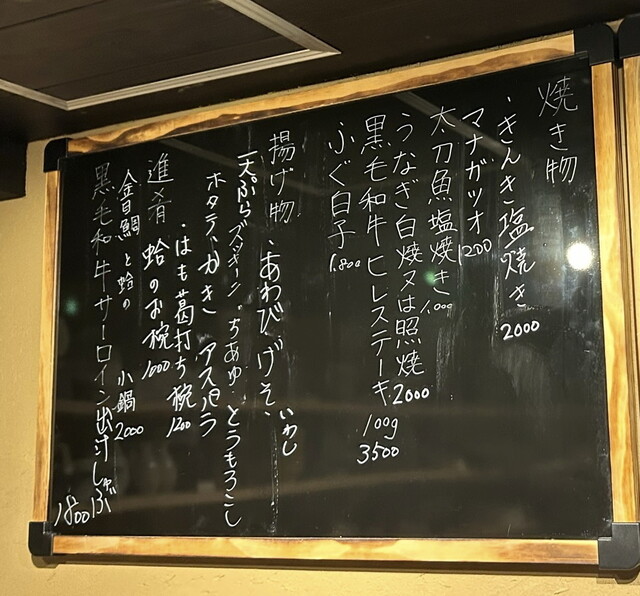 焼き物
・きんき塩焼き 2000
マナガツオ 1200
太刀魚塩焼き 1,000
うなぎ白焼又は照焼 2000
黒毛和牛ヒレステーキ 100g 3500
ふぐ白子 1.800
揚げ物・あわび げそ、いわし
天ぷら ズッキーニ・ちあゆ・とうもろこし
ホタテ・かき アスパラ
・はも葛打ち椀 1200
進肴 蛤のお椀 1000
金目鯛と蛤の 小鍋 2000
黒毛和牛サーロイン出汁しゃぶ 1800